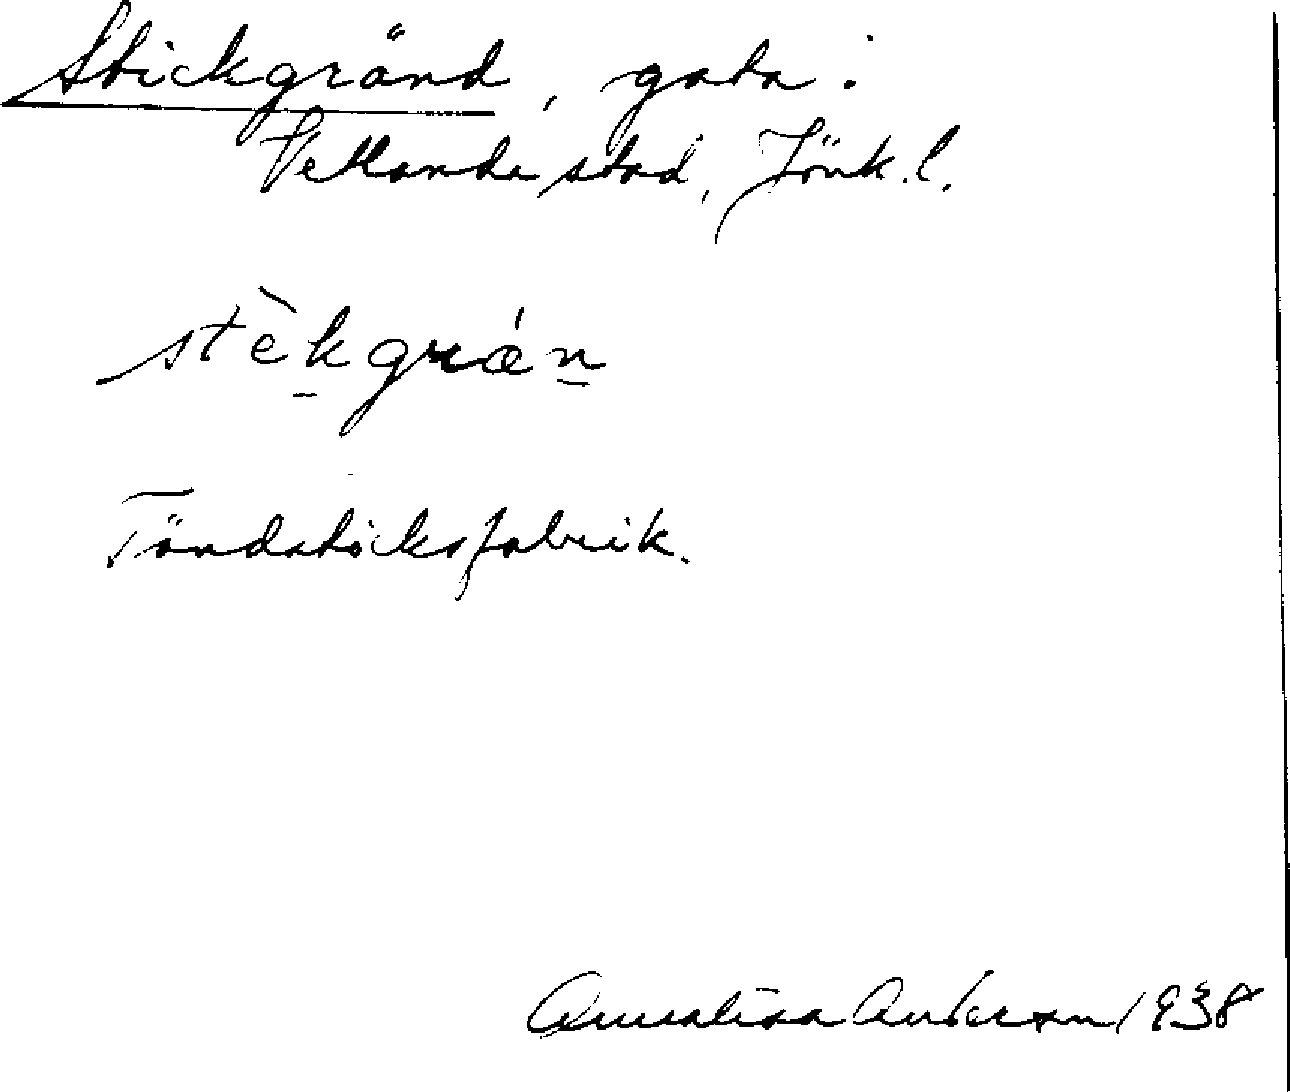 Stickgränd, gata.
Vetlanda stad, Jönk. l.
stèkgrǽn
Tändsticksfabrik.
Annalisa Anderson 1938